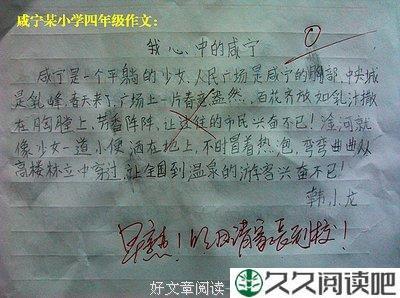 咸宁某小学四年级作文：
我心中的咸宁
咸宁是一个平躺的少女、人民广场是咸宁的胸部，中央城
是乳峰、春天来了、广场上一片春意盎然、百花齐放如乳汁撒
在胸膛上、芳香阵阵、让过往的市民兴奋不已！淦河就
像少女一道小便洒在地上、不时冒着热泡、弯弯曲曲从
高楼林立中穿过、让全国到温泉的游客兴奋不已！
韩小龙
0
早熟！明日请家长到校！
好文章阅读
久久阅读吧